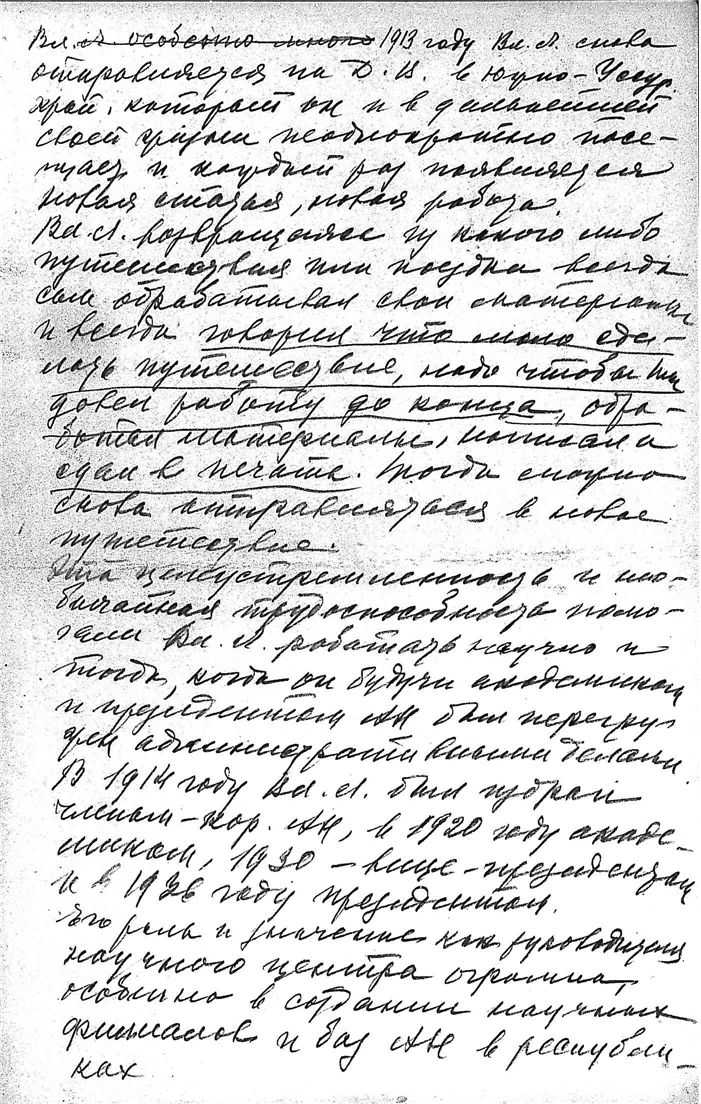 Вл. Л. особенно много 1913 году Вл. Л. снова
отправляется на Д.В. в Южно-Уссур.
край, который он и в дальнейшей
своей жизни неоднократно посе-
щает и каждый раз появляется
новая статья, новая работа.
Вл. Л. возвращаясь из какого либо
путешествия или поездки всегда
сам обрабатывал свои материалы
и всегда говорил что мало сде-
лать путешествие, надо чтобы ты
довел работу до конца, обра-
ботал материалы, написал и
сдал в печать. Тогда можно
снова отправляться в новое
путешествие.
Эта целеустремленность и нео-
бычайная трудоспособность помо-
гали Вл. Л. работать научно и
тогда, когда он будучи академиком
и президентом АН был перегру-
жен административными делами
В 1914 году Вл. Л. был избран
членом-кор. АН, в 1920 году акаде-
миком, 1930 – вице-президентом
и в 1936 году президентом.
Его роль и значение как руководителя
научного центра огромна,
особенно в создании научных
филиалов и баз АН в республи-
ках